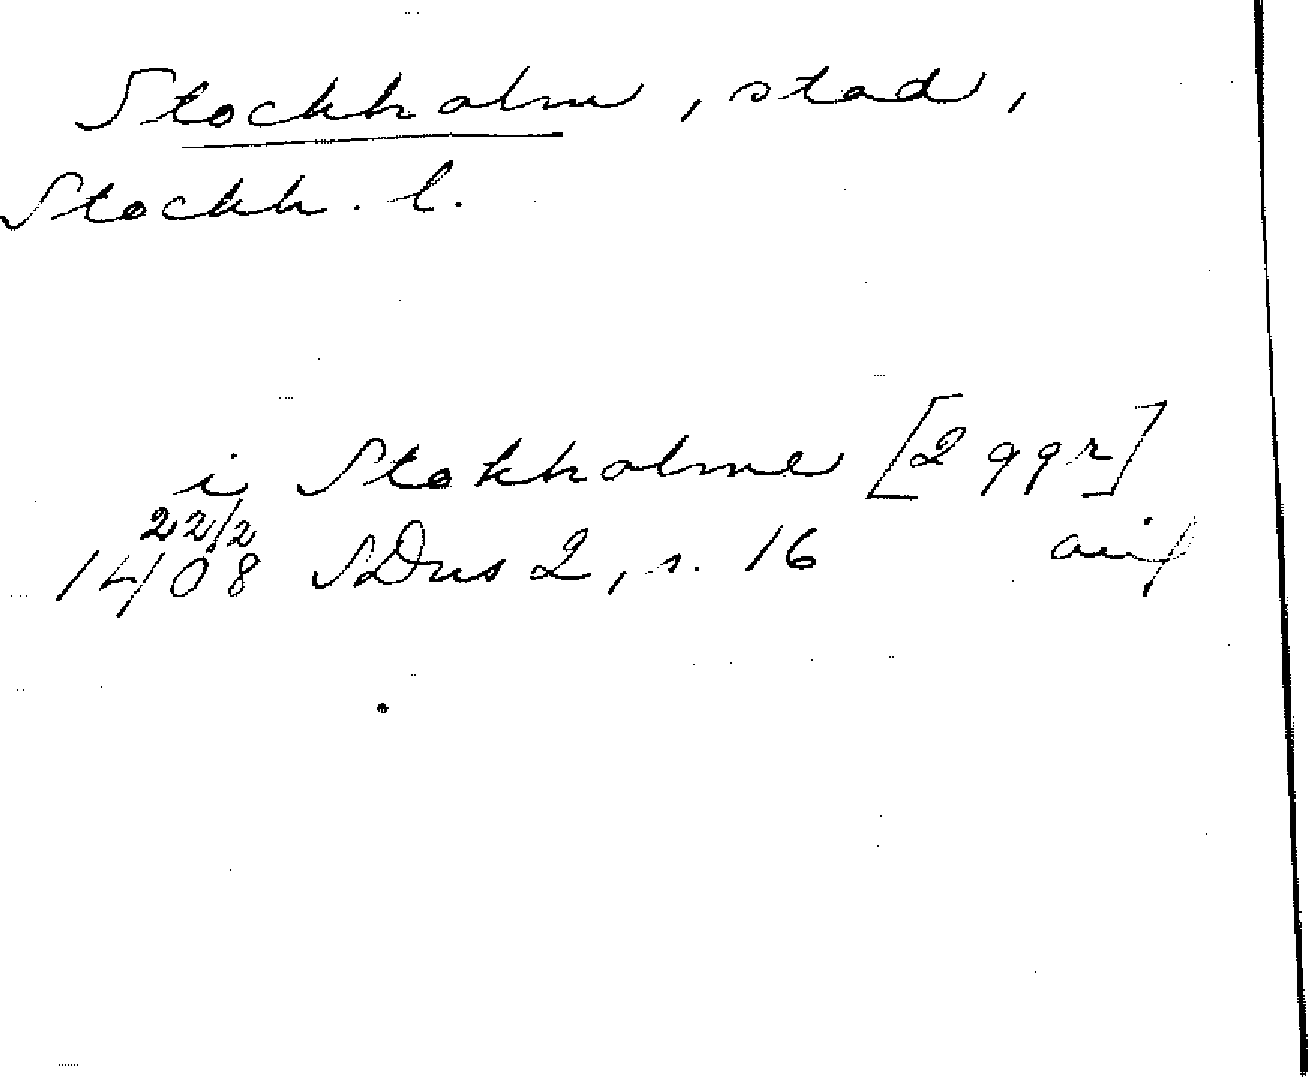 Stockholm, stad,
Stockh. l.
i Stokholme [2 ggr]
22/2
1408 SDns 2, s. 16